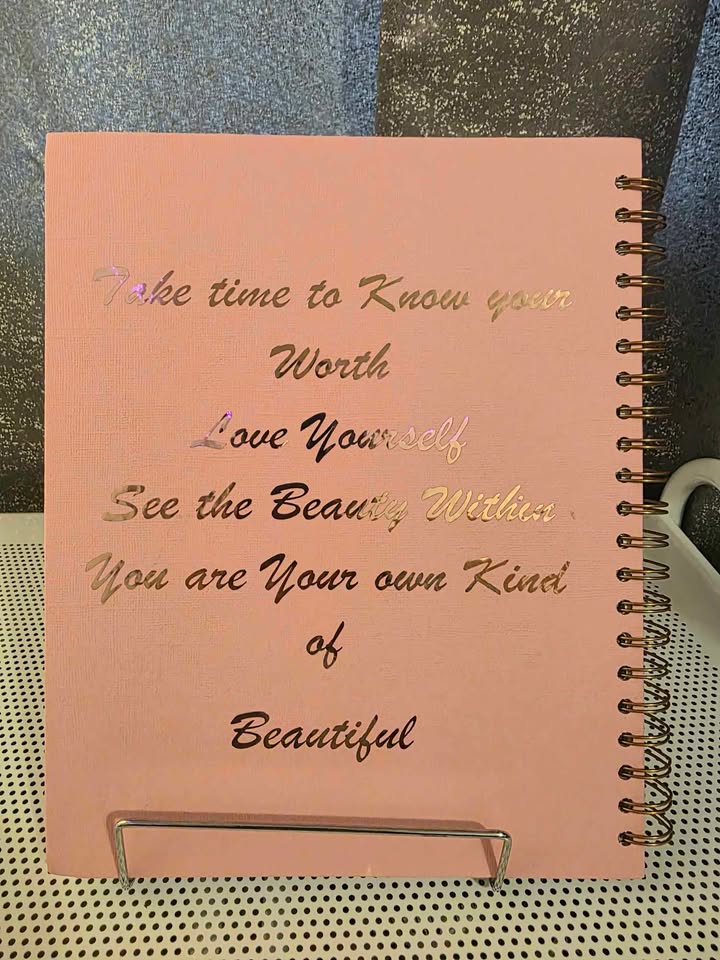 Take time to Know your
Worth
Love Yourself
See the Beauty Within
You are Your own Kind
of
Beautiful